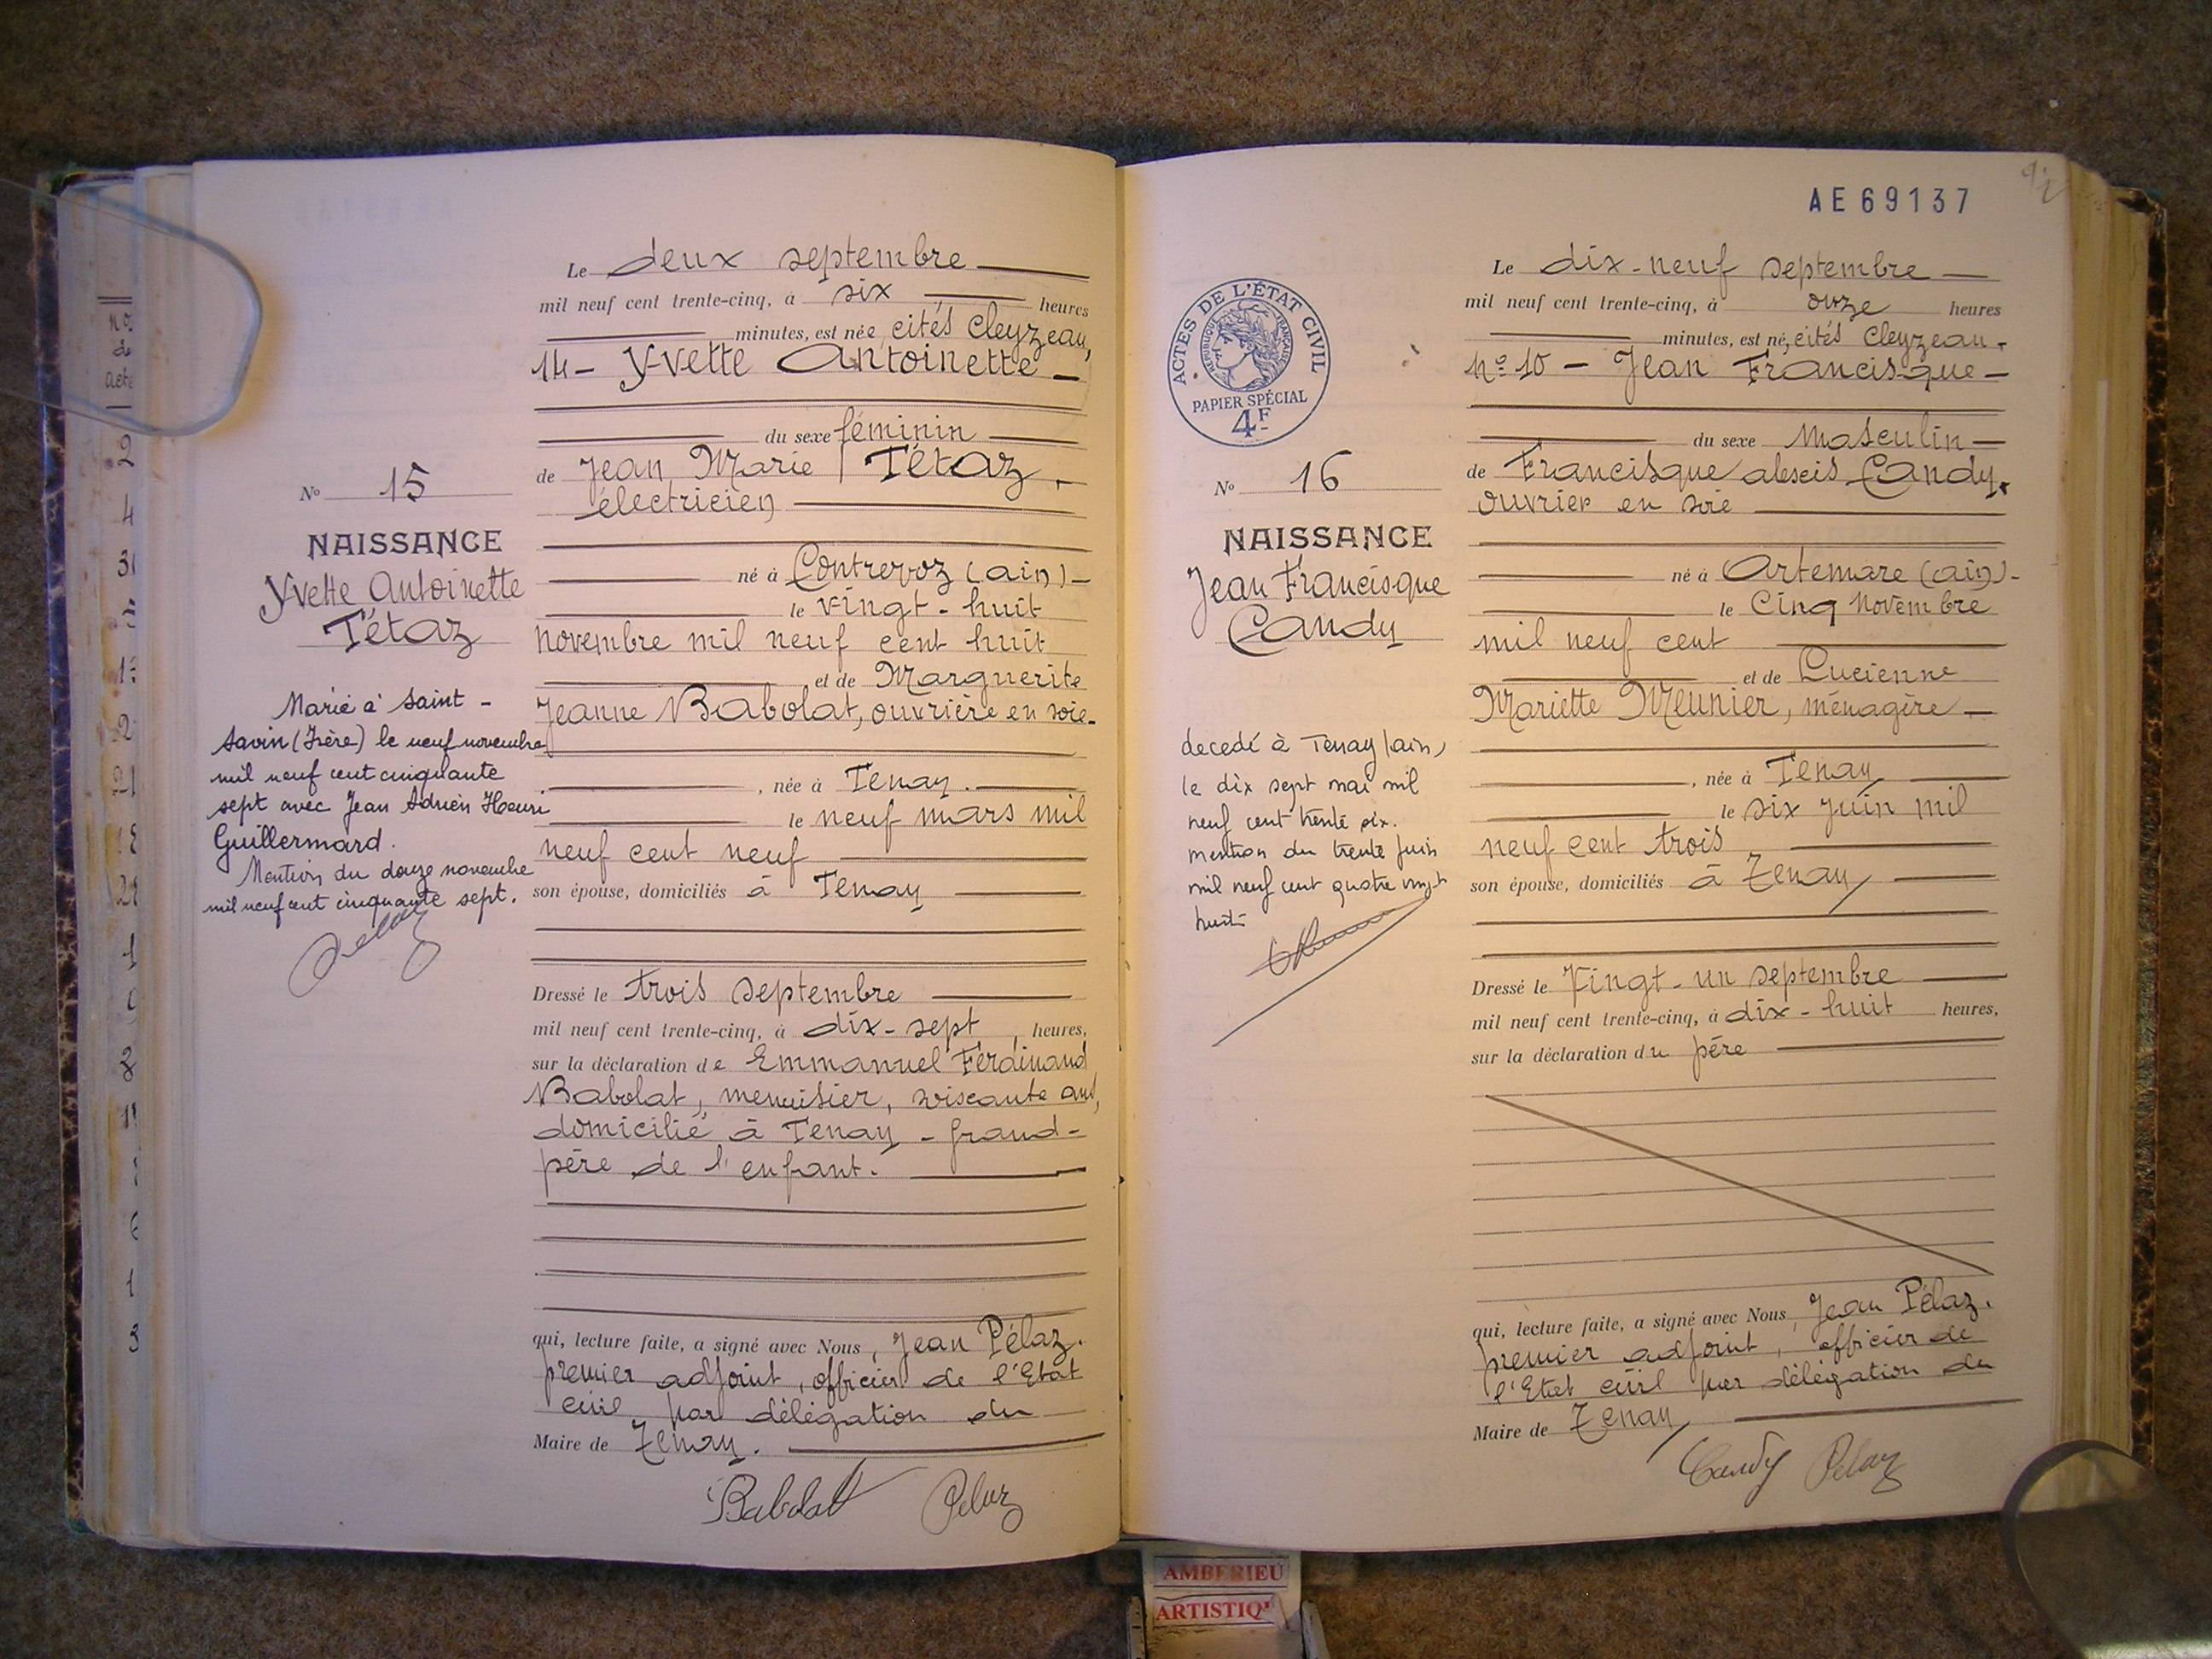 Le deux septembre
mil neuf cent trente-cinq, à six heures
minutes, est née, cités Cleyzeau,
14 - Yvette Antoinette
du sexe féminin
de Jean Marie Tétaz,
électricien
né à Contrevoz (ain)
le vingt-huit
novembre mil neuf cent huit
et de Marguerite
Jeanne Babolat, ouvrière en soie
, née à Tenay.
le neuf mars mil
neuf cent neuf
son épouse, domiciliés à Tenay
Dressé le trois septembre
mil neuf cent trente-cinq, à dix-sept heures,
sur la déclaration de Emmanuel Ferdinand
Babolat, menuisier, soixante ans,
domicilié à Tenay - grand-
père de l'enfant.
qui, lecture faite, a signé avec Nous, Jean Pélaz.
premier adjoint, officier de l'Etat
civil par délégation du
Maire de Tenay.
Babolat Pelaz
No 15
NAISSANCE
Yvette Antoinette
Tétaz
Marié à Saint-
Savin (Isère) le neuf novembre
mil neuf cent cinquante
sept avec Jean Adrien Henri
Guillermard.
Mention du douze novembre
mil neuf cent cinquante sept.
no
de
acte
AE69137
Le dix-neuf septembre
mil neuf cent trente-cinq, à onze heures
minutes, est né, cités Cleyzeau
no 10 - Jean Francisque
du sexe masculin
de Francisque alexis Candy,
ouvrier en soie
né à Artemare (ain)
le cinq novembre
mil neuf cent
et de Lucienne
Mariette Meunier, ménagère
, née à Tenay
le six juin mil
neuf cent trois
son épouse, domiciliés à Tenay
Dressé le vingt-un septembre
mil neuf cent trente-cinq, à dix-huit heures,
sur la déclaration du père
qui, lecture faite, a signé avec Nous, Jean Pélaz.
premier adjoint, officier de
l'Etat civil par délégation du
Maire de Tenay
Candy Pelaz
ACTES DE L'ÉTAT CIVIL
RÉPUBLIQUE FRANÇAISE
PAPIER SPÉCIAL
4F
No 16
NAISSANCE
Jean Francisque
Candy
decedé à Tenay (ain)
le dix sept mai mil
neuf cent trente six.
mention du trente juin
mil neuf cent quatre vingt
huit
AMBERIEU
ARTISTIQ